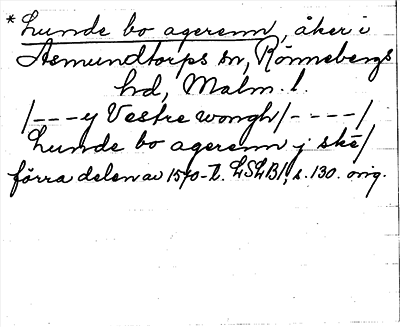 * Lunde bo agerenn, åker i
Asmundtorps sn, Rönnebergs
hd, Malm. l.
/---y Vestre wongh/----/
Lunde bo agerenn j ské/
förra delen av 1570-t. LSLB1, s. 130. orig.